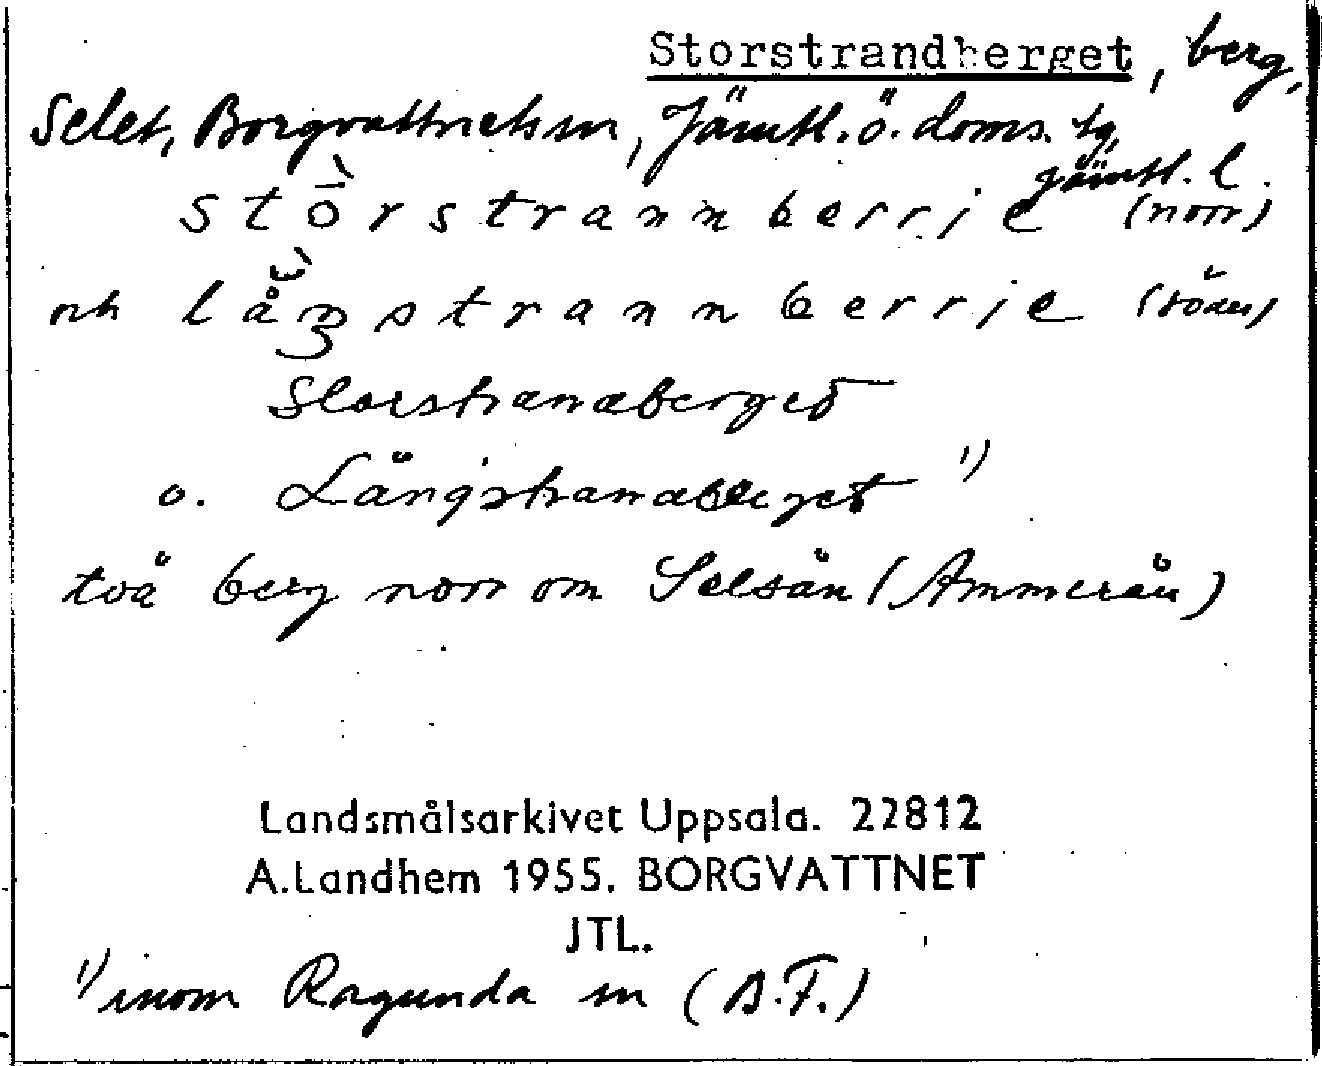 Storstrandberget, berg,
Selet, Borgvattnets sn, Jämtl. ö. doms. tg,
jämtl. l.
stò̄rstrannberrje (norr)
och låŋstrannberrje (söder)
Storstrandberget
o. Långstrandberget 1)
två berg norr om Selsån (Ammerån)
Landsmålsarkivet Uppsala. 22812
A.Landhem 1955. BORGVATTNET
JTL.
1) inom Ragunda sn (A.F.)